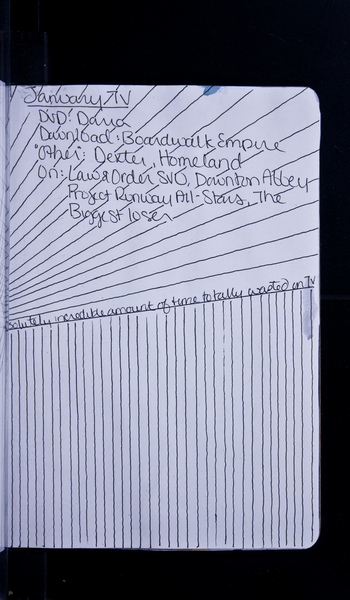 January TV
DVD: Daria
Download: Boardwalk Empire
"Other": Dexter, Homeland
On: Law & Order SVU, Downton Abbey
Project Runway All-Stars, The
Biggest loser
solutely incredible amount of time totally wasted on TV